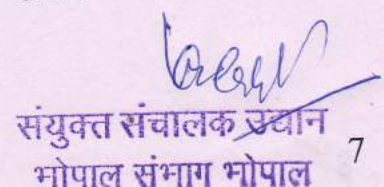 संयुक्त संचालक उद्यान
भोपाल संभाग भोपाल
7